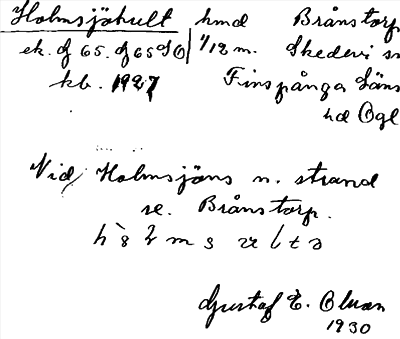 Holmsjöhult hmd Brånstorp
ek. bl 65. bl 65 SO 1/12 m. Skedevi sn
kb. 1927 Finspånga läns
hd Ögl
Vid Holmsjöns n. strand
se. Brånstorp.
Gustaf E. Olsson
1930